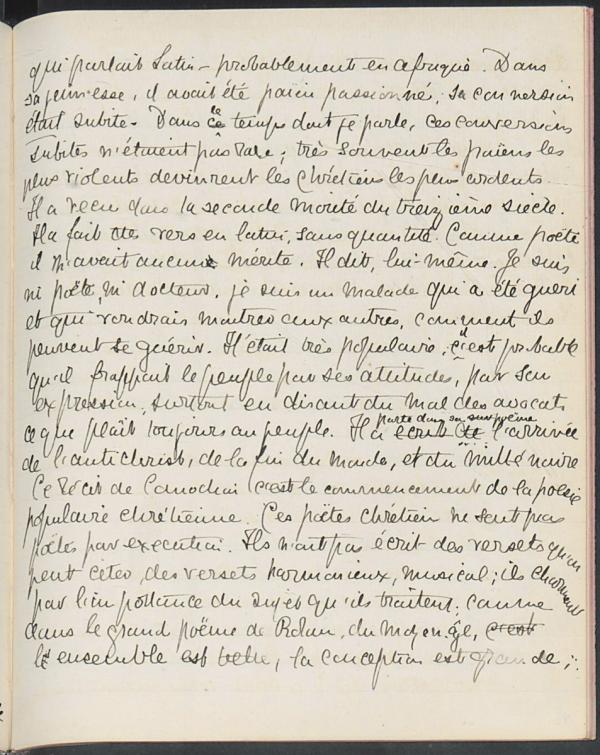 qui parlait Latin - probablement en afrique. Dans
sa jeunesse, il avait été païen passionné, sa conversion
était subite. Dans ce temps dont je parle, ces conversions
subites n'étaient pas rare; très souvent les païens les
plus violents devinrent les Chrétiens les plus ardents.
Il a vecu dans la seconde moitié du treizième siècle.
Il a fait des vers en latin, sans quantité. Comme poëte
il n'avait aucune mérite. Il dit, lui-même. Je suis
ni poëte, ni docteur, je suis un malade qui a été gueri
et qui voudrais montrer aux autres, comment ils
peuvent se guérir. Il était très populaire, c'est probable
qu'il frappait le peuple par ses attitudes, par son
expression, surtout en disant du mal des avocats
ce que plaît toujours au peuple. Il a écrit de l'arrivée
parle dans son poëme
de l'antichrist, de la fin du monde, et du millénaire
Ce récit de c'est le commencement de la poesie
populaire chrétienne. Ces poëtes chrétien ne sont pas
poëtes par execution. Ils n'ont pas écrit des versets qu'on
peut citer, des versets harmonieux, musical; ils charment
par l'importance du sujet qu'ils traitent; comme
dans le grand poëme de Rolan, du moyen âge, c'est
l'ensemble est belle, la conception est grande;